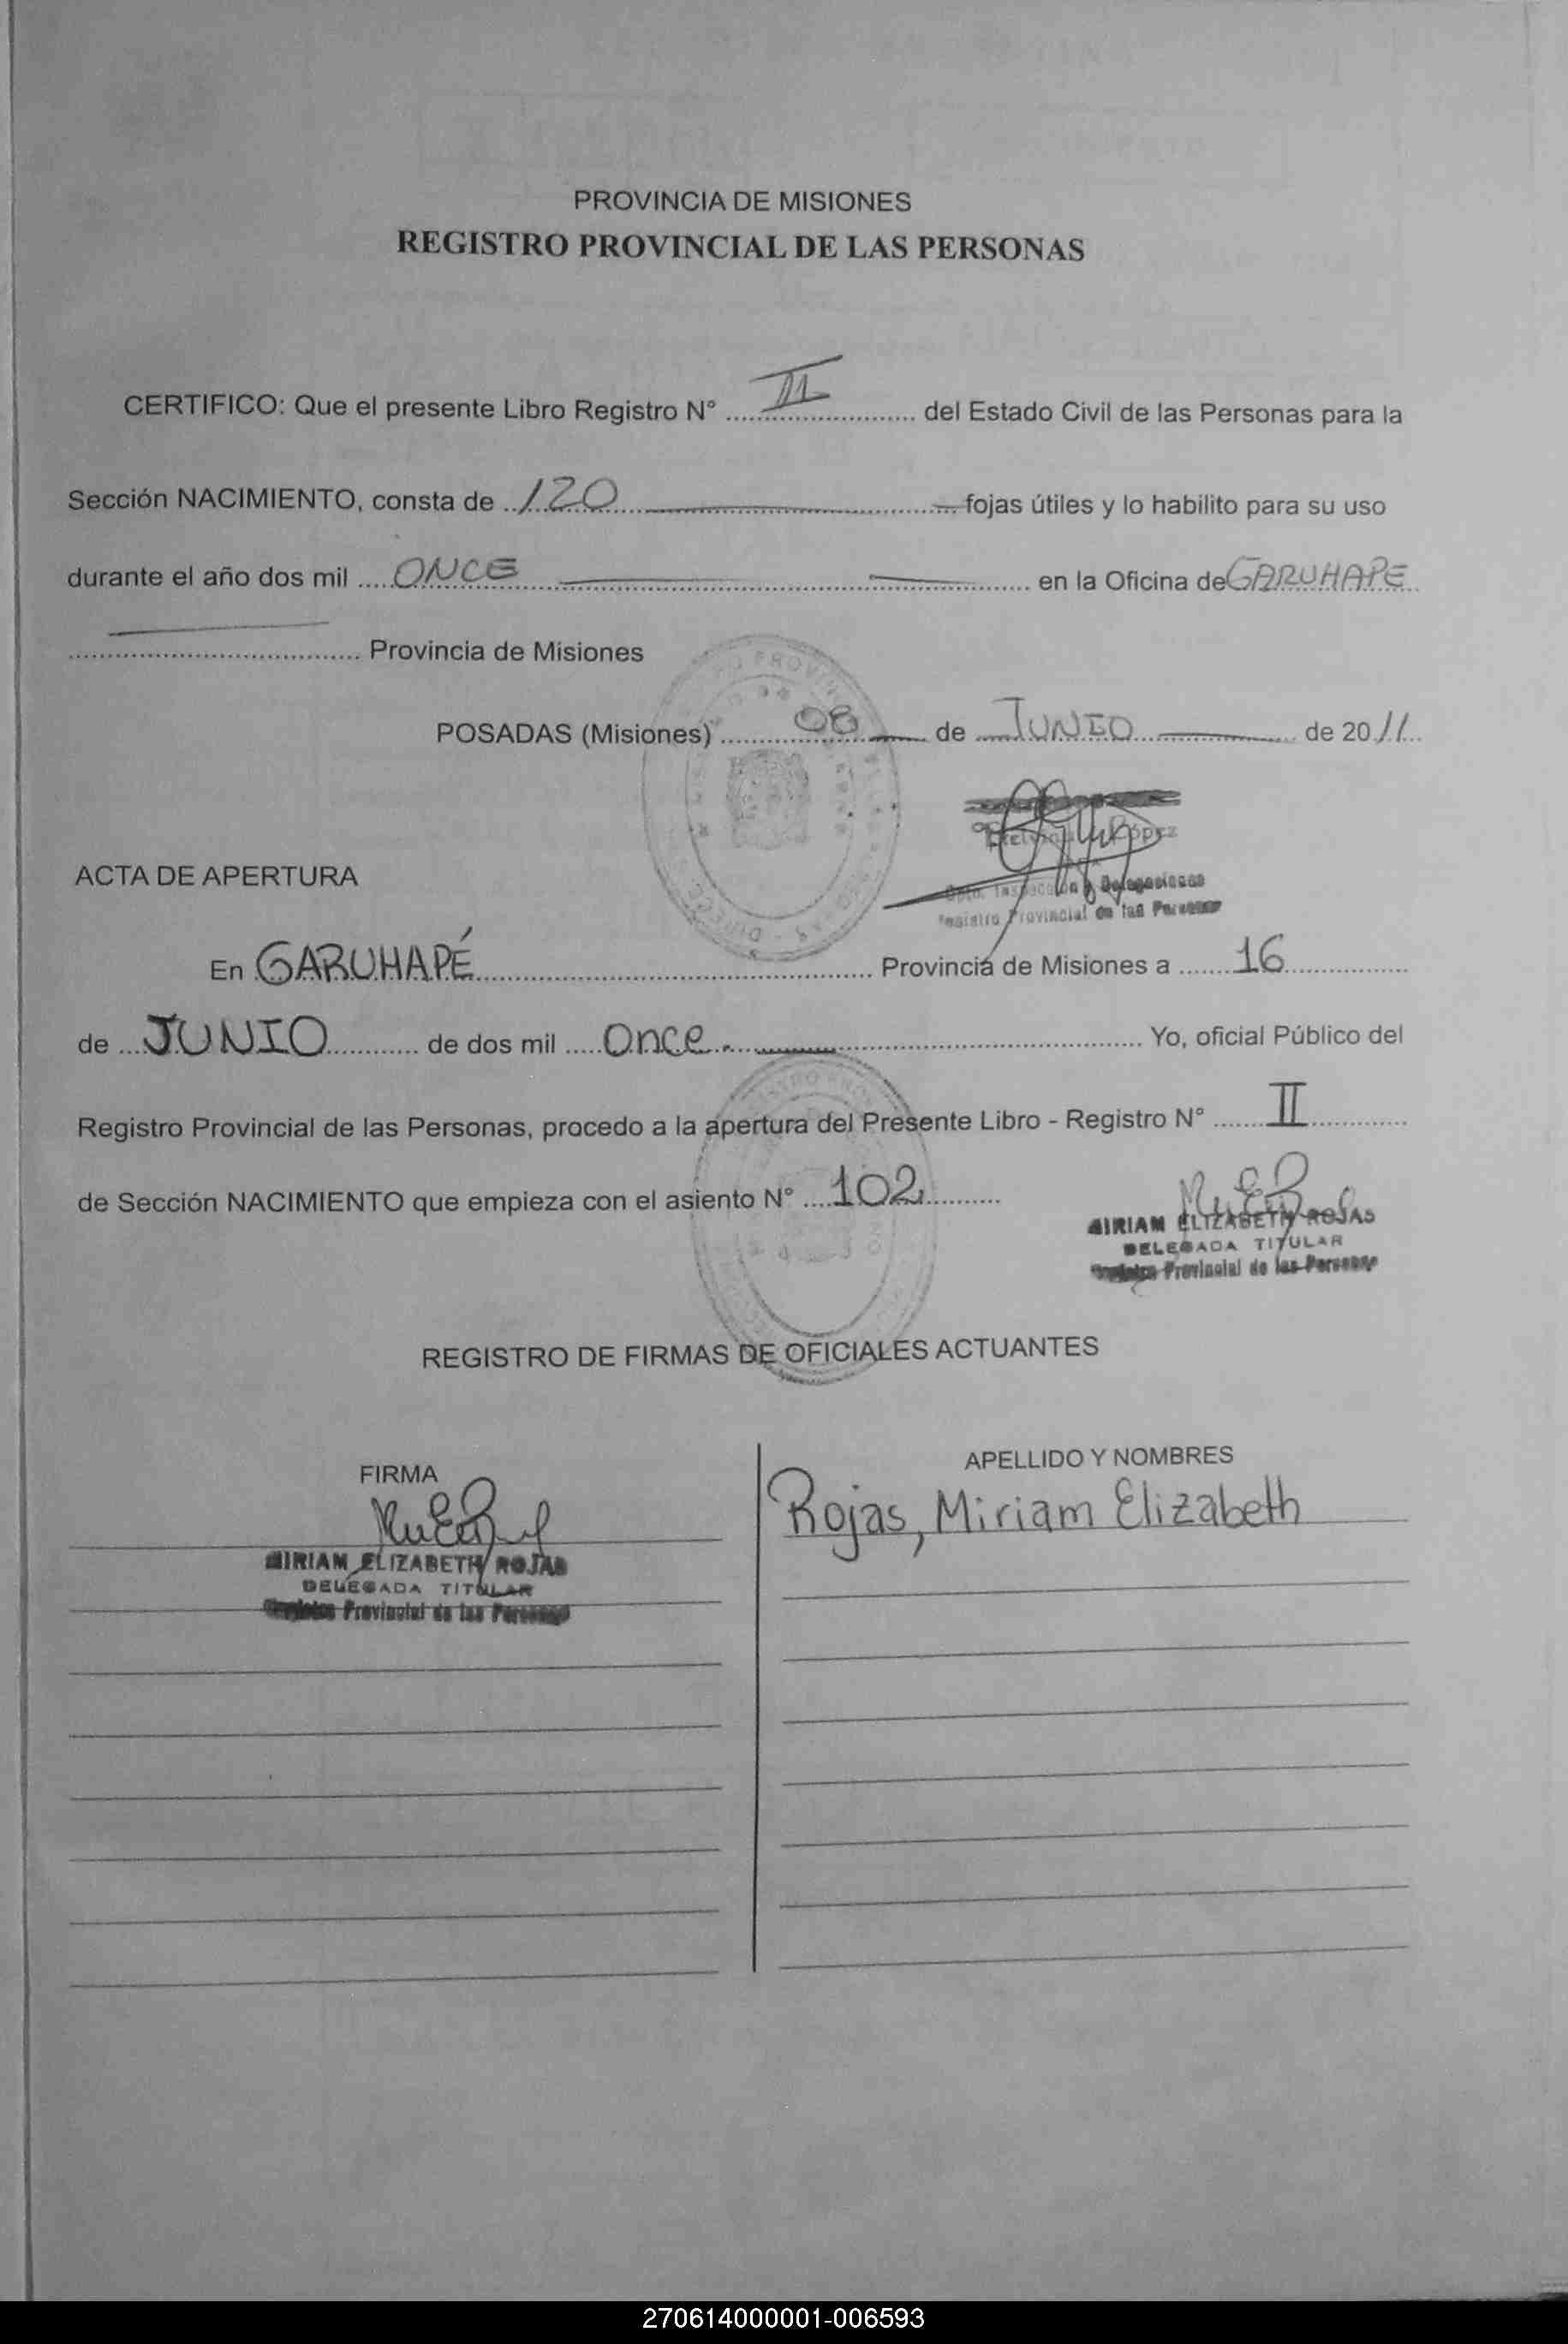 PROVINCIA DE MISIONES
REGISTRO PROVINCIAL DE LAS PERSONAS
CERTIFICO: Que el presente Libro Registro N° II del Estado Civil de las Personas para la
Sección NACIMIENTO, consta de 120 fojas útiles y lo habilito para su uso
durante el año dos mil ONCE en la Oficina de GARUHAPE
Provincia de Misiones
POSADAS (Misiones) 08 de JUNIO de 2011
López
Dpto. Inspección y Delegaciones
Registro Provincial de las Personas
ACTA DE APERTURA
En GARUHAPÉ Provincia de Misiones a 16
de JUNIO de dos mil once. Yo, oficial Público del
Registro Provincial de las Personas, procedo a la apertura del Presente Libro - Registro N° II
de Sección NACIMIENTO que empieza con el asiento N° 102
MIRIAM ELIZABETH ROJAS
DELEGADA TITULAR
Registro Provincial de las Personas
REGISTRO DE FIRMAS DE OFICIALES ACTUANTES
FIRMA
APELLIDO Y NOMBRES
Rojas, Miriam Elizabeth
MIRIAM ELIZABETH ROJAS
DELEGADA TITULAR
Registro Provincial de las Personas
270614000001-006593